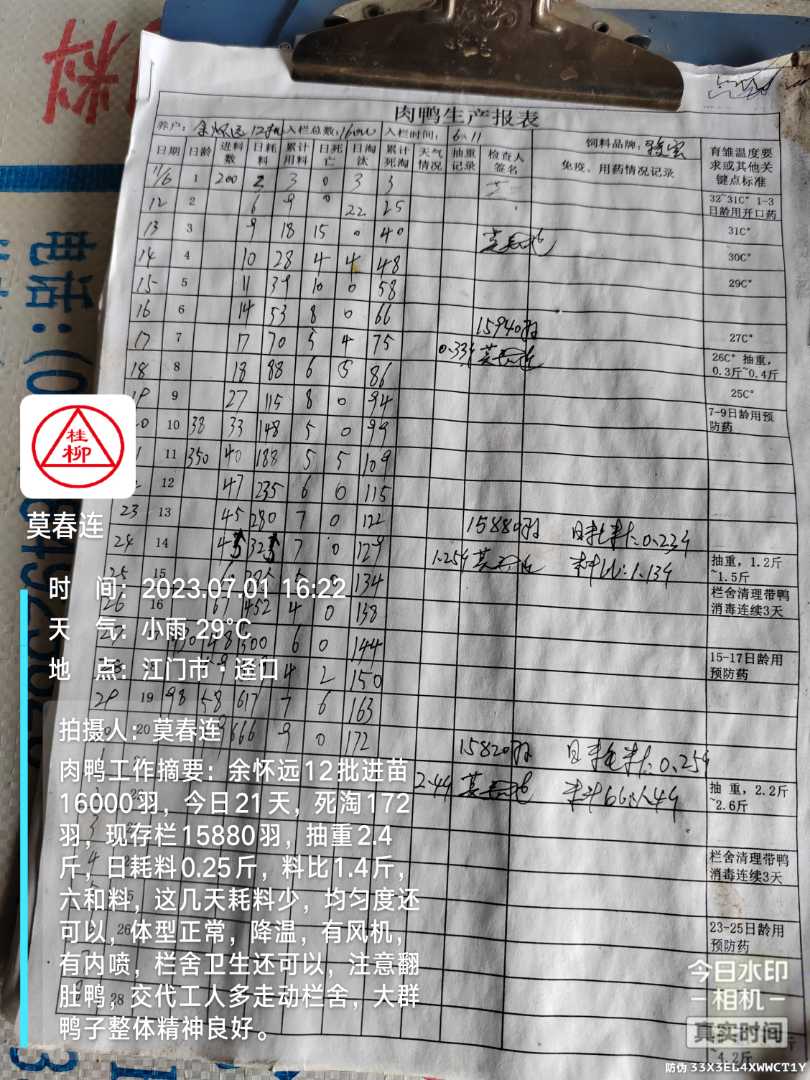 料
电话:(0
肉鸭生产报表
养户: 余怀远 12批 入栏总数: 16000 入栏时间: 6.11 饲料品牌:
日期 日龄 进料数 日耗料 累计用料 日死亡 日淘汰 累计死淘 天气情况 抽重记录 检查人签名 免疫、用药情况记录 育雏温度要求或其他关键点标准
11/6 1 200 2 3 0 3 3
32~31C° 1-3日龄用开口药
12 2 6 9 0 22 25
13 3 9 18 15 0 40 31C°
14 4 10 28 4 4 48 30C°
15 5 11 39 10 0 58 29C°
16 6 14 53 8 0 66 15940羽
17 7 17 70 5 4 75 0.334 27C°
18 8 18 88 6 5 86 26C° 抽重,0.3斤~0.4斤
19 9 27 115 8 0 94 25C°
10 38 33 148 5 0 99 7-9日龄用预防药
11 350 40 188 5 5 109
12 47 235 6 0 115
23 13 45 280 7 0 122 15880羽 日耗料:0.234
24 14 45 325 7 0 129 1.254 料比:1.134 抽重,1.2斤~1.5斤
25 15 134 栏舍清理带鸭消毒连续3天
26 16 67 452 4 0 138
48 500 6 0 144
4 2 150 15-17日龄用预防药
29 19 98 58 617 7 6 163
20 666 9 0 172
15820羽 日耗料:0.254
2.44 抽 重,2.2斤~2.6斤
栏舍清理带鸭消毒连续3天
26 23-25日龄用预防药
28
~4.2斤
桂柳
莫春连
时 间: 2023.07.01 16:22
天 气: 小雨 29°C
地 点: 江门市·迳口
拍摄人: 莫春连
肉鸭工作摘要: 余怀远12批进苗
16000羽,今日21天,死淘172
羽,现存栏15880羽,抽重2.4
斤,日耗料0.25斤,料比1.4斤,
六和料,这几天耗料少,均匀度还
可以,体型正常,降温,有风机,
有内喷,栏舍卫生还可以,注意翻
肚鸭,交代工人多走动栏舍,大群
鸭子整体精神良好。
今日水印
相机
真实时间
防伪 33X3EL4XWWCT1Y